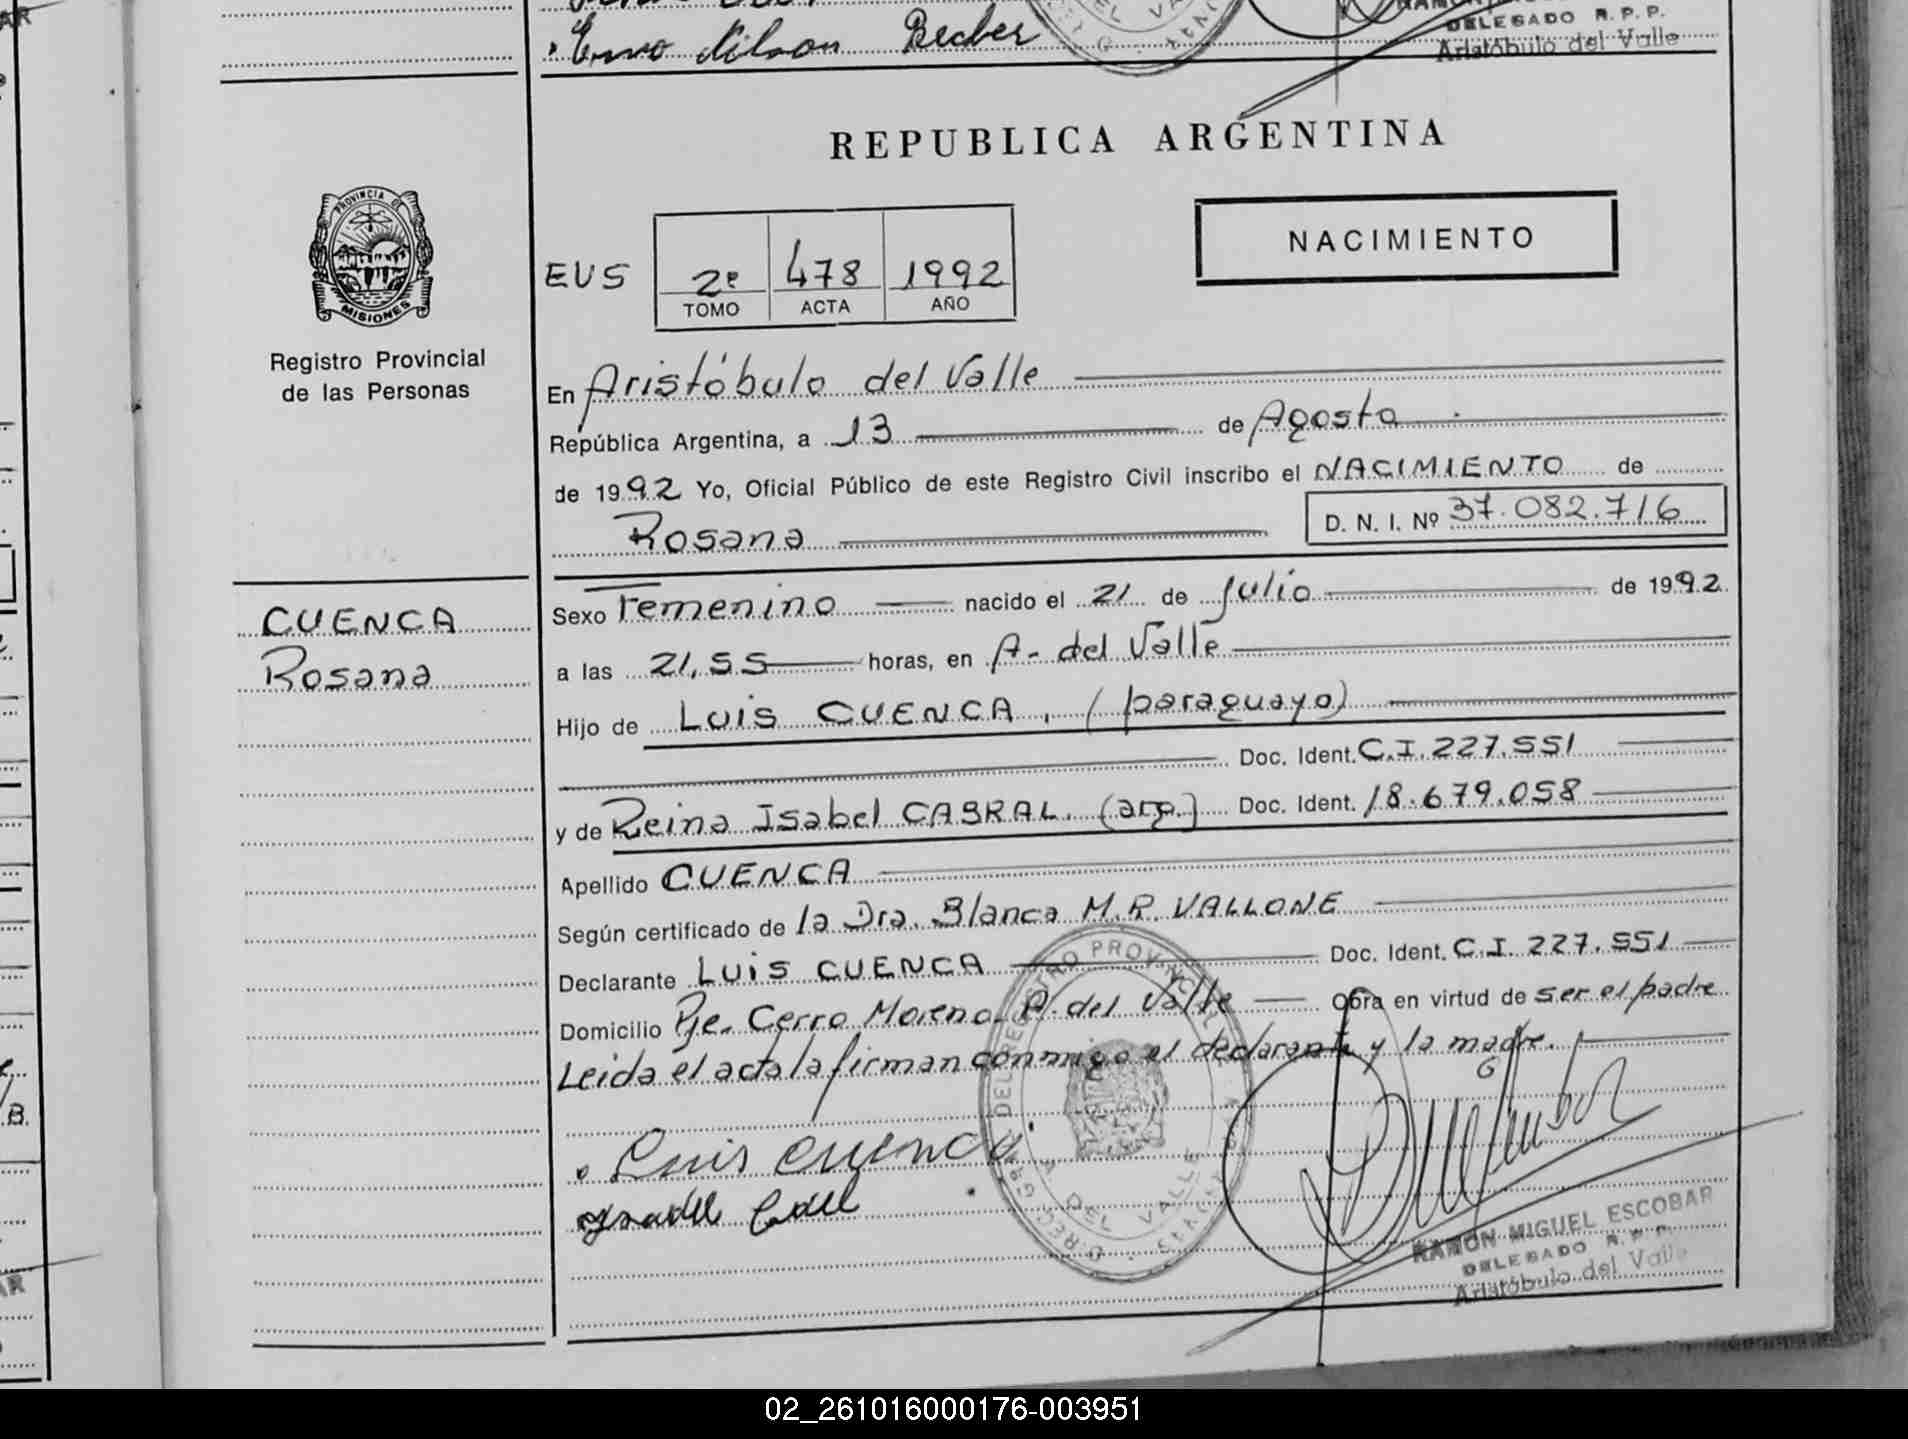 Enno Nilson Becber
DELEGADO R.P.P.
Aristóbulo del Valle
REPUBLICA ARGENTINA
PROVINCIA DE
MISIONES
Registro Provincial
de las Personas
NACIMIENTO
EUS 2º 478 1992
TOMO ACTA AÑO
En Aristóbulo del Valle
República Argentina, a 13 de Agosto
de 1992 Yo, Oficial Público de este Registro Civil inscribo el NACIMIENTO de
Rosana D. N. I. Nº 37.082.716
CUENCA
Rosana
Sexo Femenino nacido el 21 de Julio de 1992
a las 21,55 horas, en A. del Valle
Hijo de Luis CUENCA, (paraguayo)
Doc. Ident. C.I. 227.551
y de Reina Isabel CABRAL. (arg.) Doc. Ident. 18.679.058
Apellido CUENCA
Según certificado de la Dra. Blanca M.R. VALLONE
Declarante Luis CUENCA Doc. Ident. C.I. 227.551
Domicilio Pje. Cerro Moreno. A. del Valle Obra en virtud de ser el padre
Leida el acta la firman conmigo el declarante y la madre.
Luis Cuenca
RAMÓN MIGUEL ESCOBAR
DELEGADO R.P.P.
Aristóbulo del Valle
02_261016000176-003951